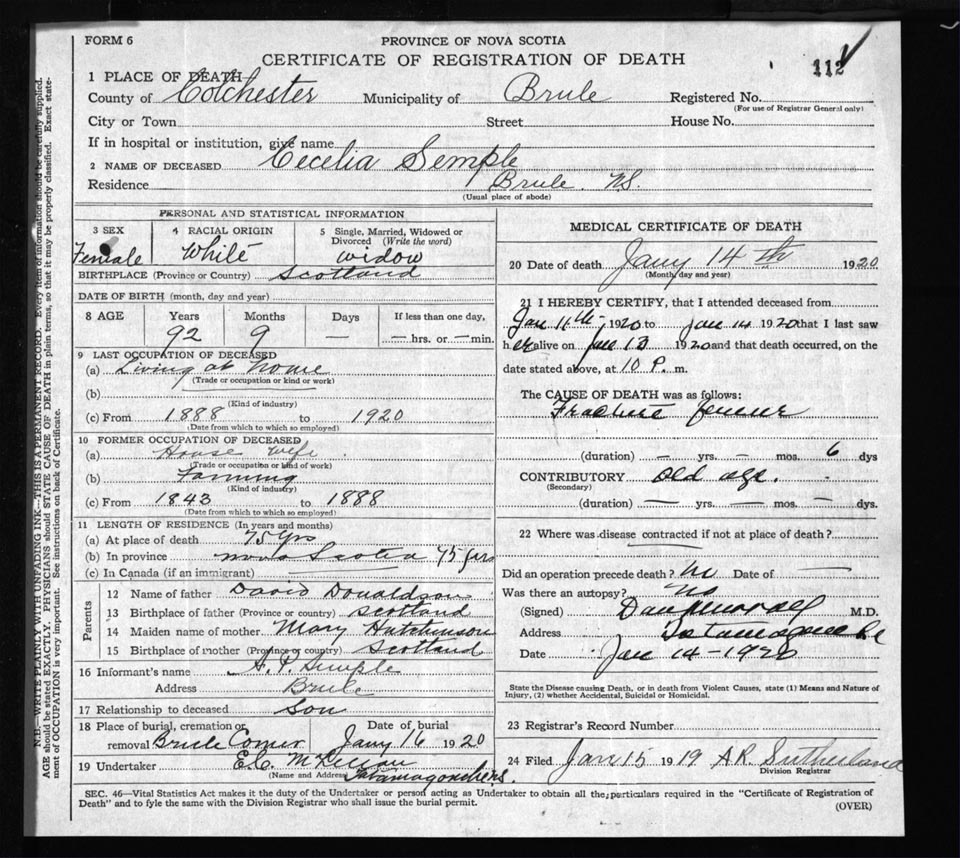 FORM 6
PROVINCE OF NOVA SCOTIA
112
CERTIFICATE OF REGISTRATION OF DEATH
1 PLACE OF DEATH
County of Colchester Municipality of Brule Registered No.
(For use of Registrar General only)
City or Town Street House No.
If in hospital or institution, give name
2 NAME OF DECEASED Cecelia Semple
Residence Brule. N.S.
(Usual place of abode)
PERSONAL AND STATISTICAL INFORMATION
3 SEX 4 RACIAL ORIGIN 5 Single, Married, Widowed or Divorced (Write the word)
Female White widow
BIRTHPLACE (Province or Country) Scotland
DATE OF BIRTH (month, day and year)
8 AGE Years Months Days If less than one day,
92 9 — — hrs. or — min.
9 LAST OCCUPATION OF DECEASED
(a) Living at home
(Trade or occupation or kind or work)
(b)
(Kind of industry)
(c) From 1888 to 1920
(Date from which to which so employed)
10 FORMER OCCUPATION OF DECEASED
(a) House wife
(Trade or occupation or kind of work)
(b) Farming
(Kind of industry)
(c) From 1843 to 1888
(Date from which to which so employed)
11 LENGTH OF RESIDENCE (In years and months)
(a) At place of death 75 yrs
(b) In province Nova Scotia 75 yrs
(c) In Canada (if an immigrant)
Parents
12 Name of father David Donaldson
13 Birthplace of father (Province or country) Scotland
14 Maiden name of mother Mary Hutchinson
15 Birthplace of mother (Province or country) Scotland
16 Informant's name Semple
Address Brule
17 Relationship to deceased Son
18 Place of burial, cremation or Date of burial
removal Brule Corner Jany 16 1920
19 Undertaker E.C. McKillan
(Name and Address) Tatamagouche N.S.
MEDICAL CERTIFICATE OF DEATH
20 Date of death Jany 14th 1920
(Month, day and year)
21 I HEREBY CERTIFY, that I attended deceased from
Jan 11th, 1920 to Jan 14 1920 that I last saw
her alive on Jan 13 1920 and that death occurred, on the
date stated above, at 10 P. m.
The CAUSE OF DEATH was as follows:
Fracture femur
(duration) — yrs. — mos. 6 dys
CONTRIBUTORY Old age.
(Secondary)
(duration) — yrs. — mos. — dys.
22 Where was disease contracted if not at place of death?
Did an operation precede death? No Date of —
Was there an autopsy? No
(Signed) Dan M.D.
Address Tatamagouche
Date Jan 14-1920
State the Disease causing Death, or in death from Violent Causes, state (1) Means and Nature of
Injury, (2) whether Accidental, Suicidal or Homicidal.
23 Registrar's Record Number
24 Filed Jan 15 1919 A.R. Sutherland
Division Registrar
SEC. 46—Vital Statistics Act makes it the duty of the Undertaker or person acting as Undertaker to obtain all the particulars required in the "Certificate of Registration of
Death" and to fyle the same with the Division Registrar who shall issue the burial permit.
(OVER)
N.B.—WRITE PLAINLY WITH UNFADING INK—THIS IS A PERMANENT RECORD. Every item of information should be carefully supplied.
AGE should be stated EXACTLY. PHYSICIANS should STATE CAUSE OF DEATH in plain terms, so that it may be properly classified. Exact state-
ment of OCCUPATION is very important. See instructions on back of Certificate.